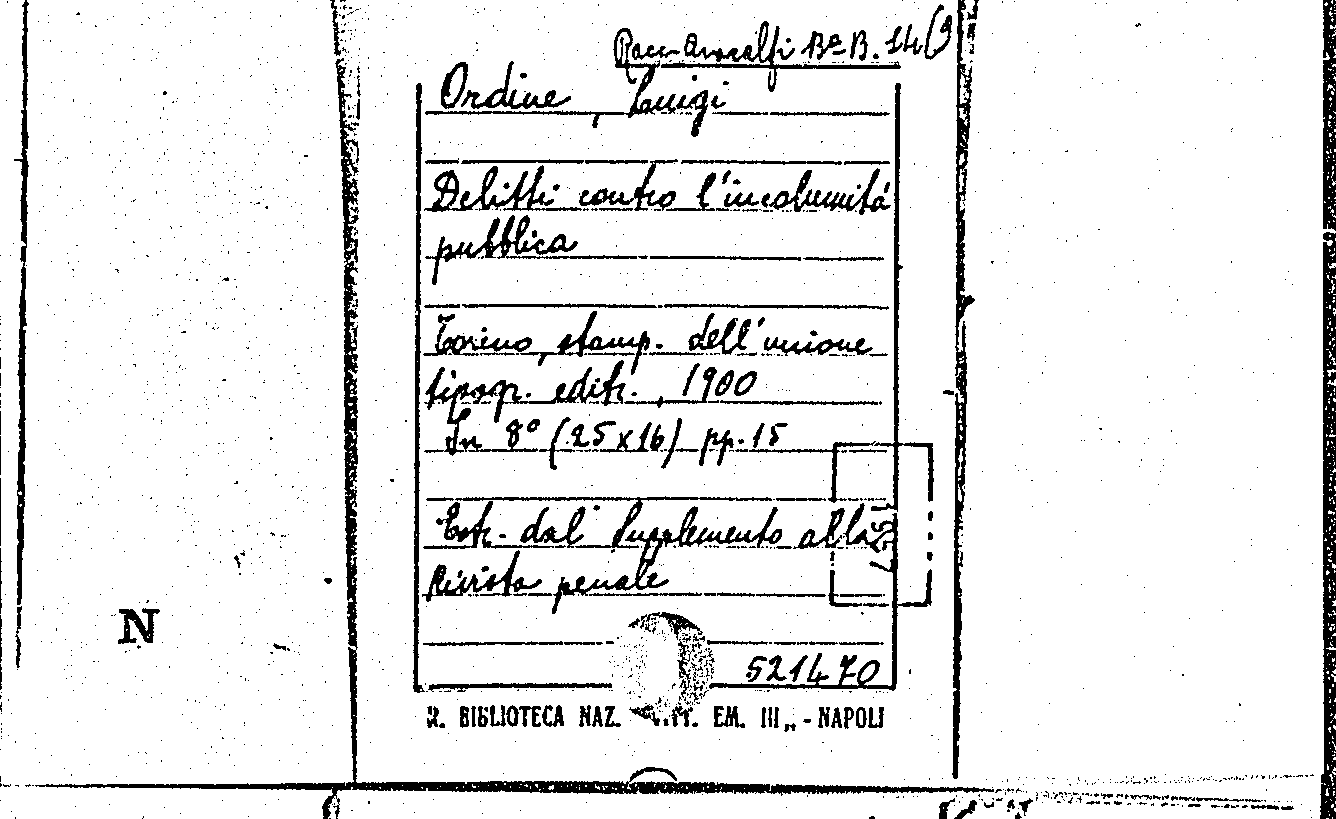 Racc. Amalfi Bª B. 14(9
Ordine, Luigi
Delitti contro l'incolumitá
pubblica
Torino, stamp. dell'unione
tipogr. editr., 1900
In 8° (25x16) pp. 15
Estr. dal Supplemento alla
Rivista penale
521470
R. BIBLIOTECA NAZ. VITT. EM. III„ - NAPOLI
N